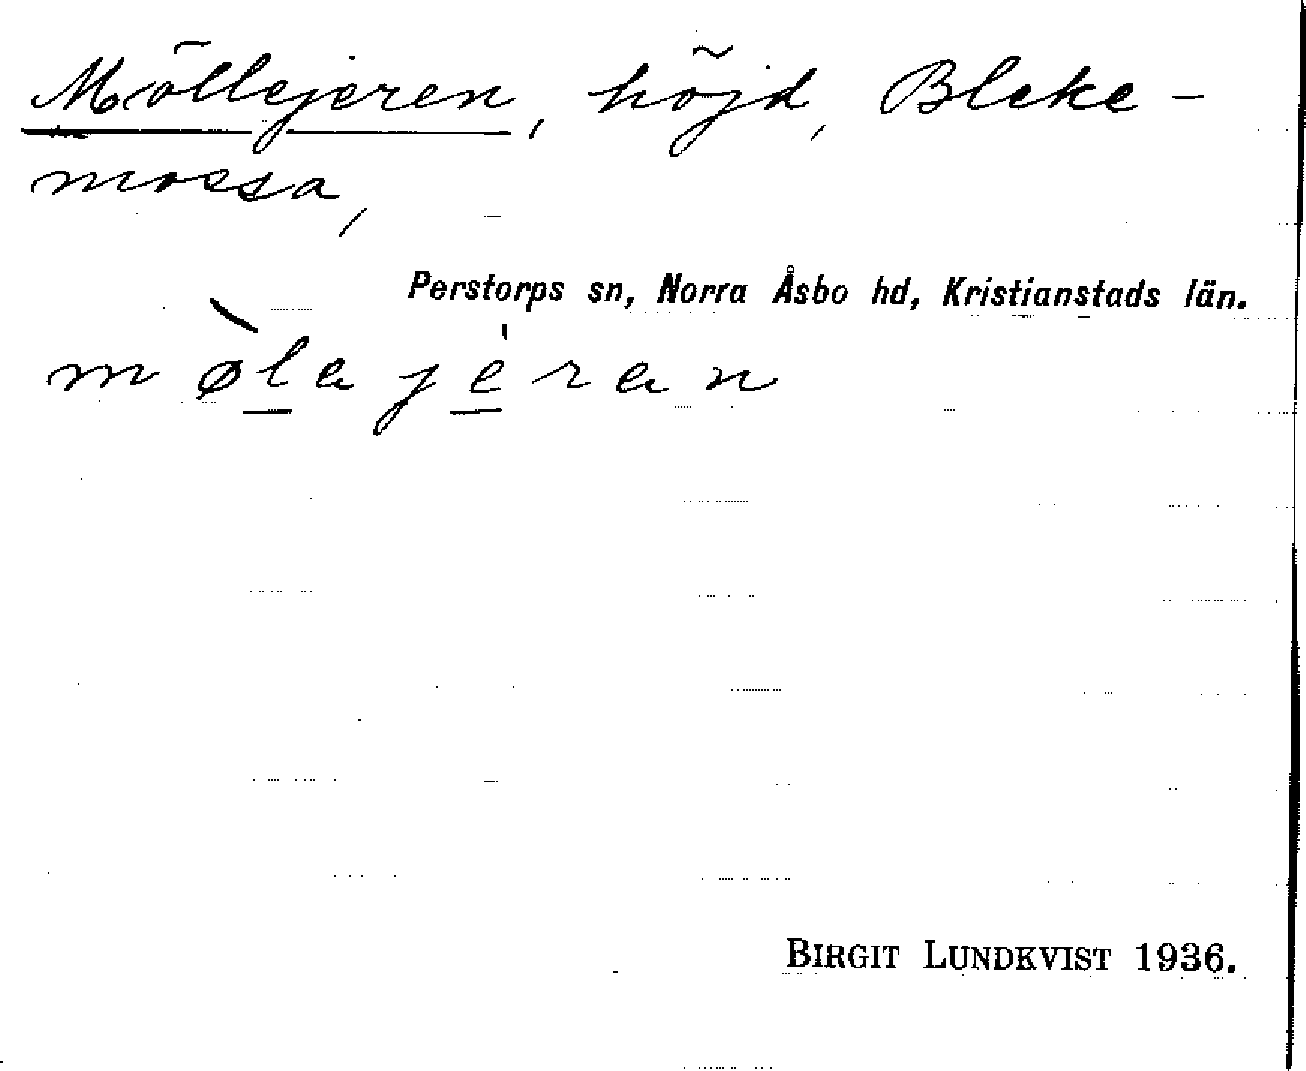 Möllejeren, höjd, Bleke-
mossa,
Perstorps sn, Norra Åsbo hd, Kristianstads län.
mø̀l̲ajé̲ran
BIRGIT LUNDKVIST 1936.